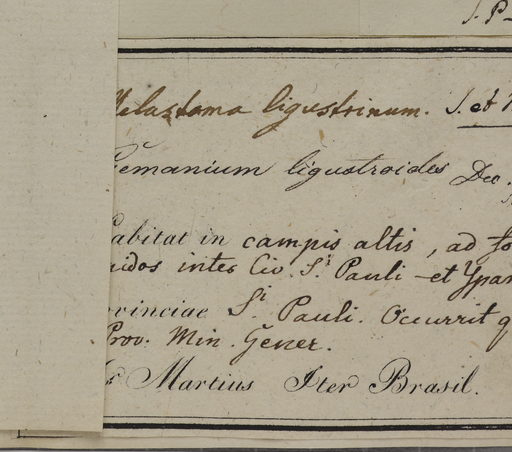 S. P
Melastoma ligustrinum. S. et
Cremanium ligustroides Dec.
Habitat in campis altis, ad
inter Civ. Sti Pauli et Ypan
Provinciae Sti Pauli. Occurrit q
Prov. Min. Gener.
Dr Martius Iter Brasil.